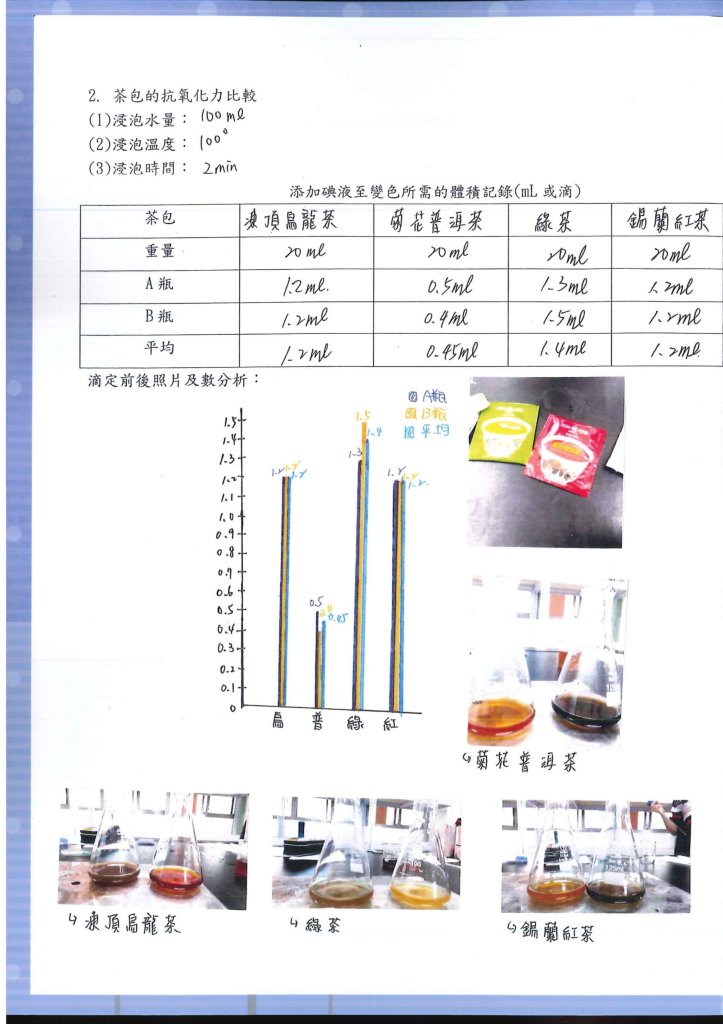 2. 茶包的抗氧化力比較
(1)浸泡水量： 100 ml
(2)浸泡溫度： 100°
(3)浸泡時間： 2 min
添加碘液至變色所需的體積記錄(mL 或滴)
茶包 凍頂烏龍茶 菊花普洱茶 綠茶 錫蘭紅茶
重量 20 ml 20 ml 20 ml 20 ml
A 瓶 1.2 ml. 0.5 ml 1.3 ml 1.2 ml
B 瓶 1.2 ml 0.4 ml 1.5 ml 1.2 ml
平均 1.2 ml 0.45 ml 1.4 ml 1.2 ml.
滴定前後照片及數分析：
A瓶
B瓶
平均
1.5
1.4
1.3
1.2
1.1
1.0
0.9
0.8
0.7
0.6
0.5
0.4
0.3
0.2
0.1
0
1.2 1.2 1.2
0.5 0.4 0.45
1.3 1.5 1.4
1.2 1.2 1.2
烏 普 綠 紅
↳菊花普洱茶
↳凍頂烏龍茶
↳綠茶
↳錫蘭紅茶